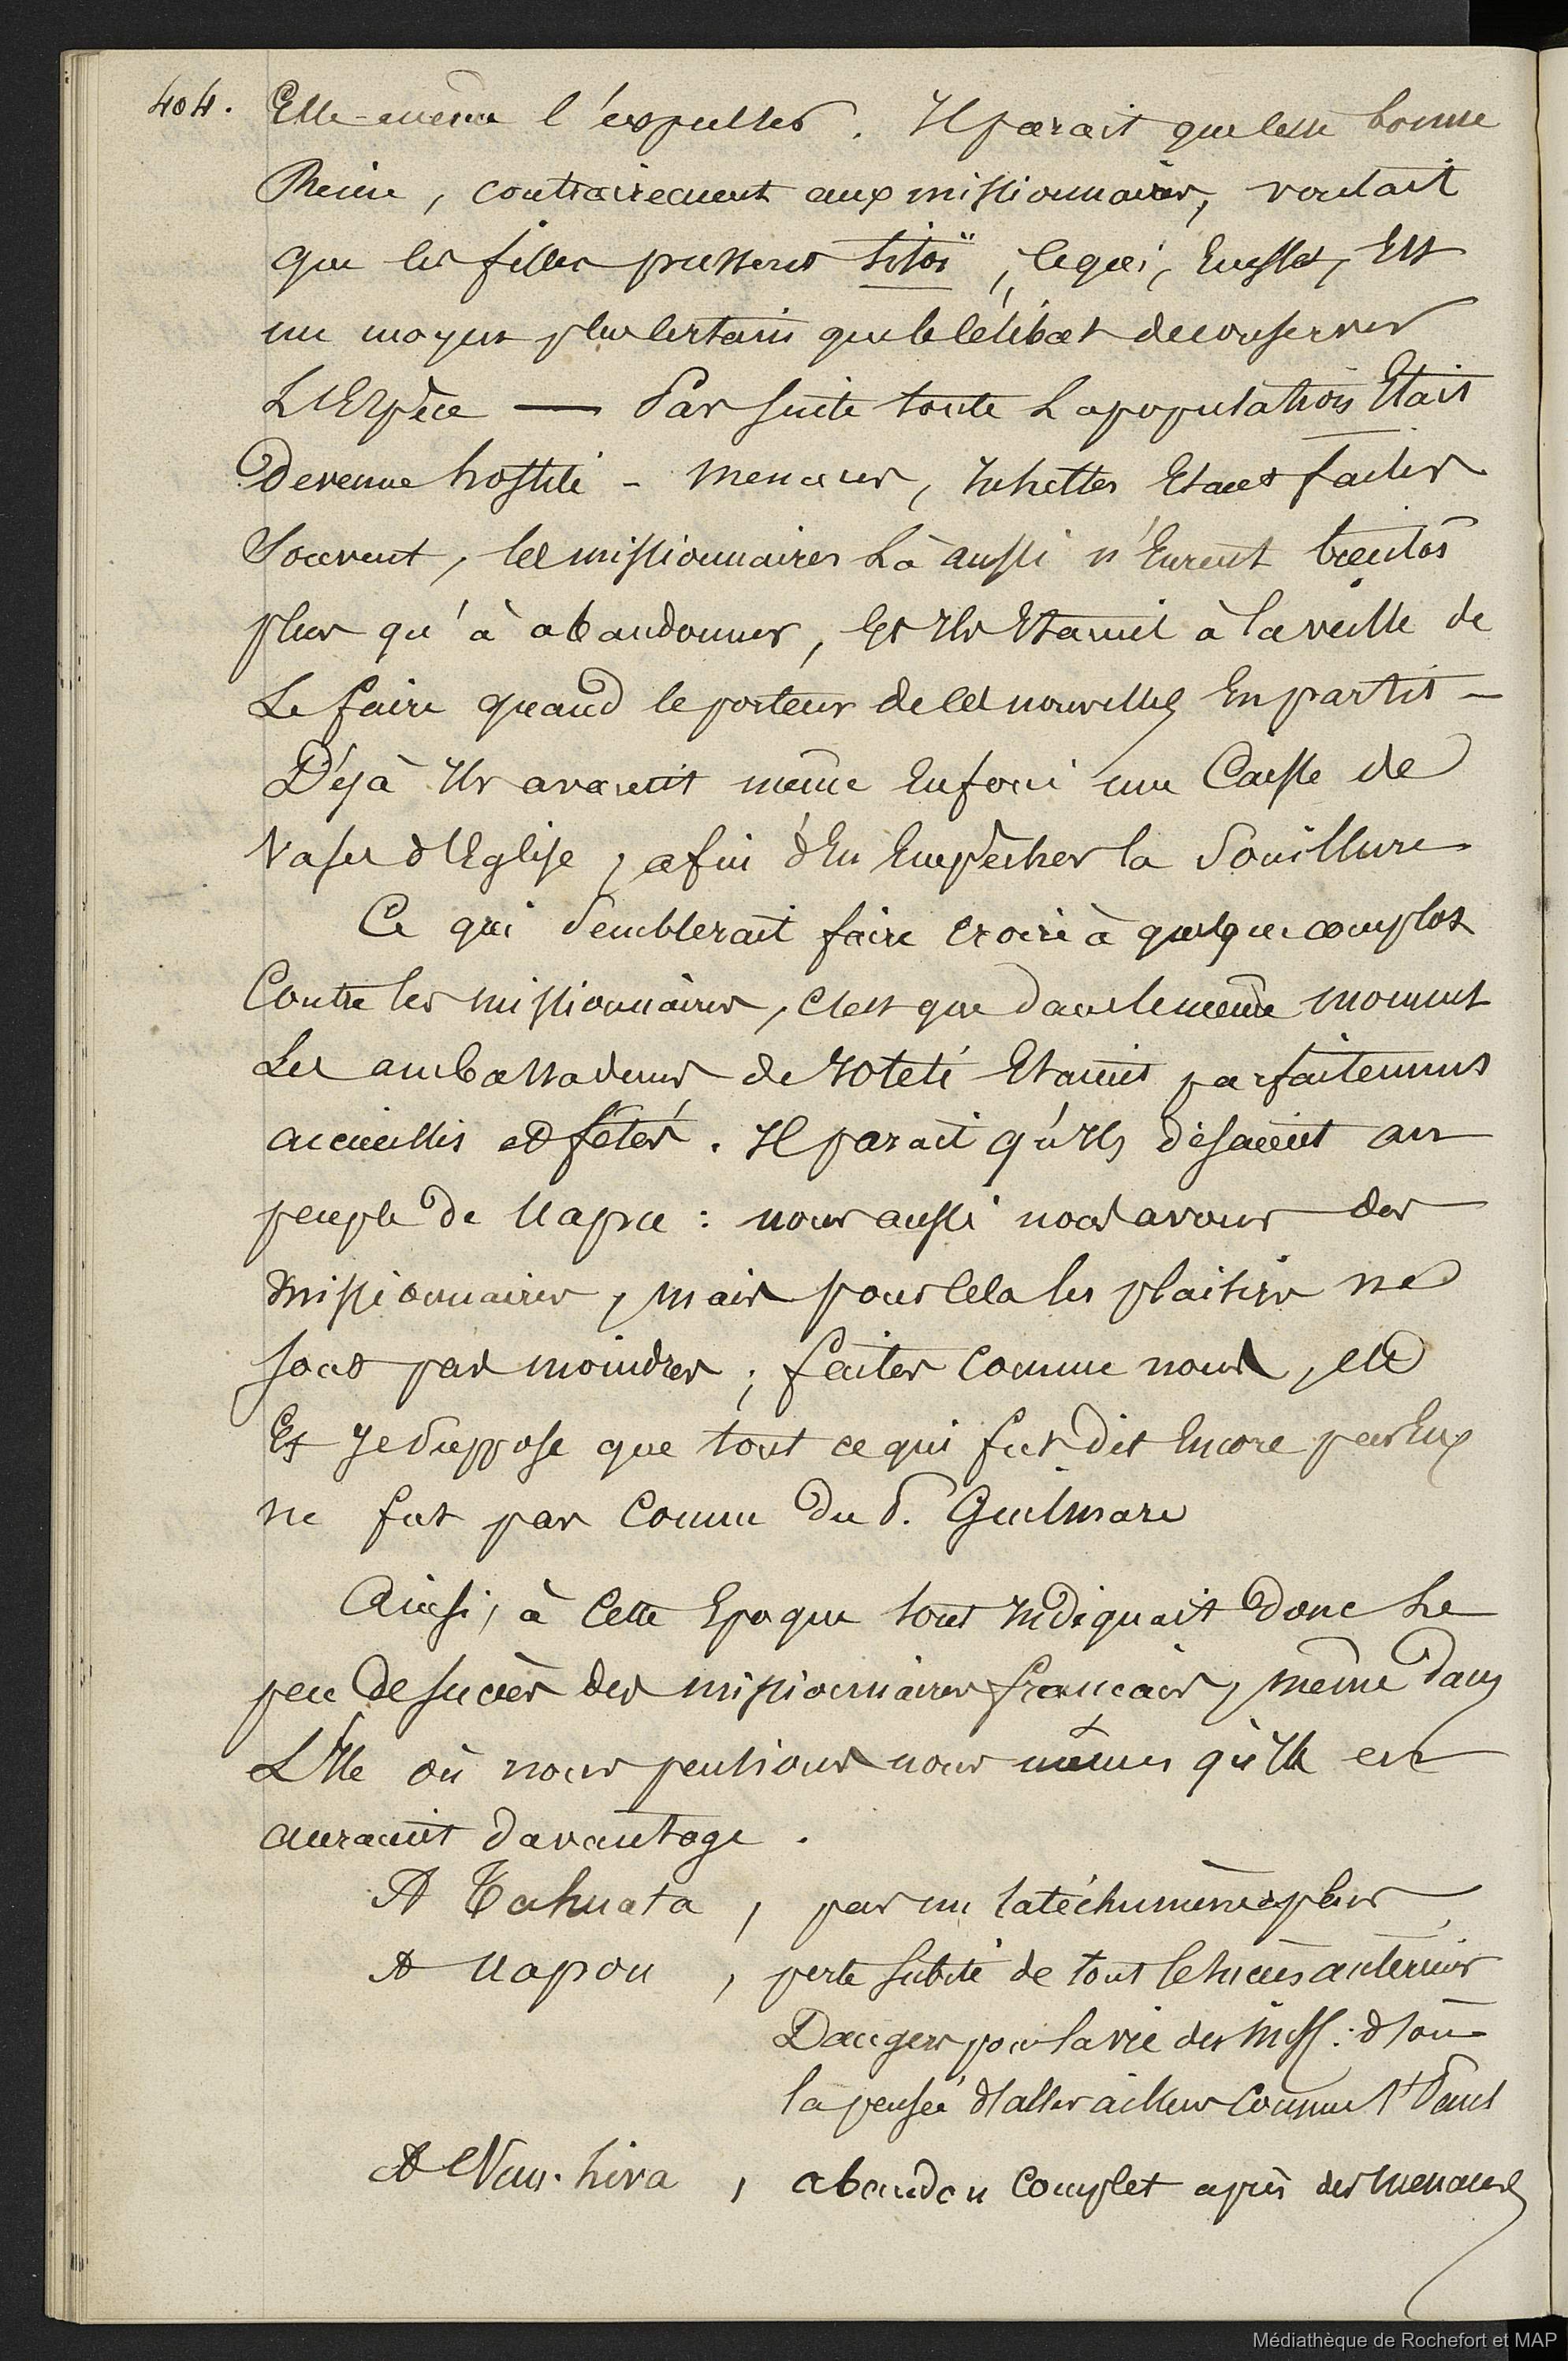 404.
Elle-même l'expulser. Il parait que cette bonne
Reine, contrairement aux missionnaires, voulait
que les filles pussent titoï, ce qui, en effet, Est
un moyen plus certain que le célibat de conserver
L'Espèce — Par suite toute La population Etait
Devenue hostile - menaces, Insultes Etant faites
Souvent, les missionnaires Là aussi n'Eurent bientôt
plus qu'à abandonner, Et Ils Etaient à la veille de
Le faire quand le porteur de ces nouvelles En partit —
Déjà Ils avaient même Enfoui une Caisse de
Vases d'Eglise, afin d'En Empêcher la Souillure
Ce qui Semblerait faire croire à quelque complot
Contre les missionnaires, c'est que dans le même moment
Les ambassadeurs de Iotété Etaient parfaitement
accueillis et fêtés. Il parait qu'Ils disaient au
peuple de Uapou : nous aussi nous avons des
missionnaires, mais pour cela les plaisirs ne
sont pas moindres ; faites comme nous, etc
Et Je Suppose que tout ce qui fut dit Encore par Eux
ne fut pas Connu du S. Guilmard
Ainsi, à Cette Epoque tout Indiquait donc Le
peu de succès des missionnaires français, même dans
L'Ile où nous pensions nous mêmes qu'Ils en
auraient davantage.
A Tahuata, pas un Catéchumène de plus
A Uapou, perte subite de tout le succès antérieur
Dangers pour la vie des Miss : d'où
la pensée d'aller ailleurs comme St Paul
A Nou-hiva, abandon complet après des menaces
Médiathèque de Rochefort et MAP